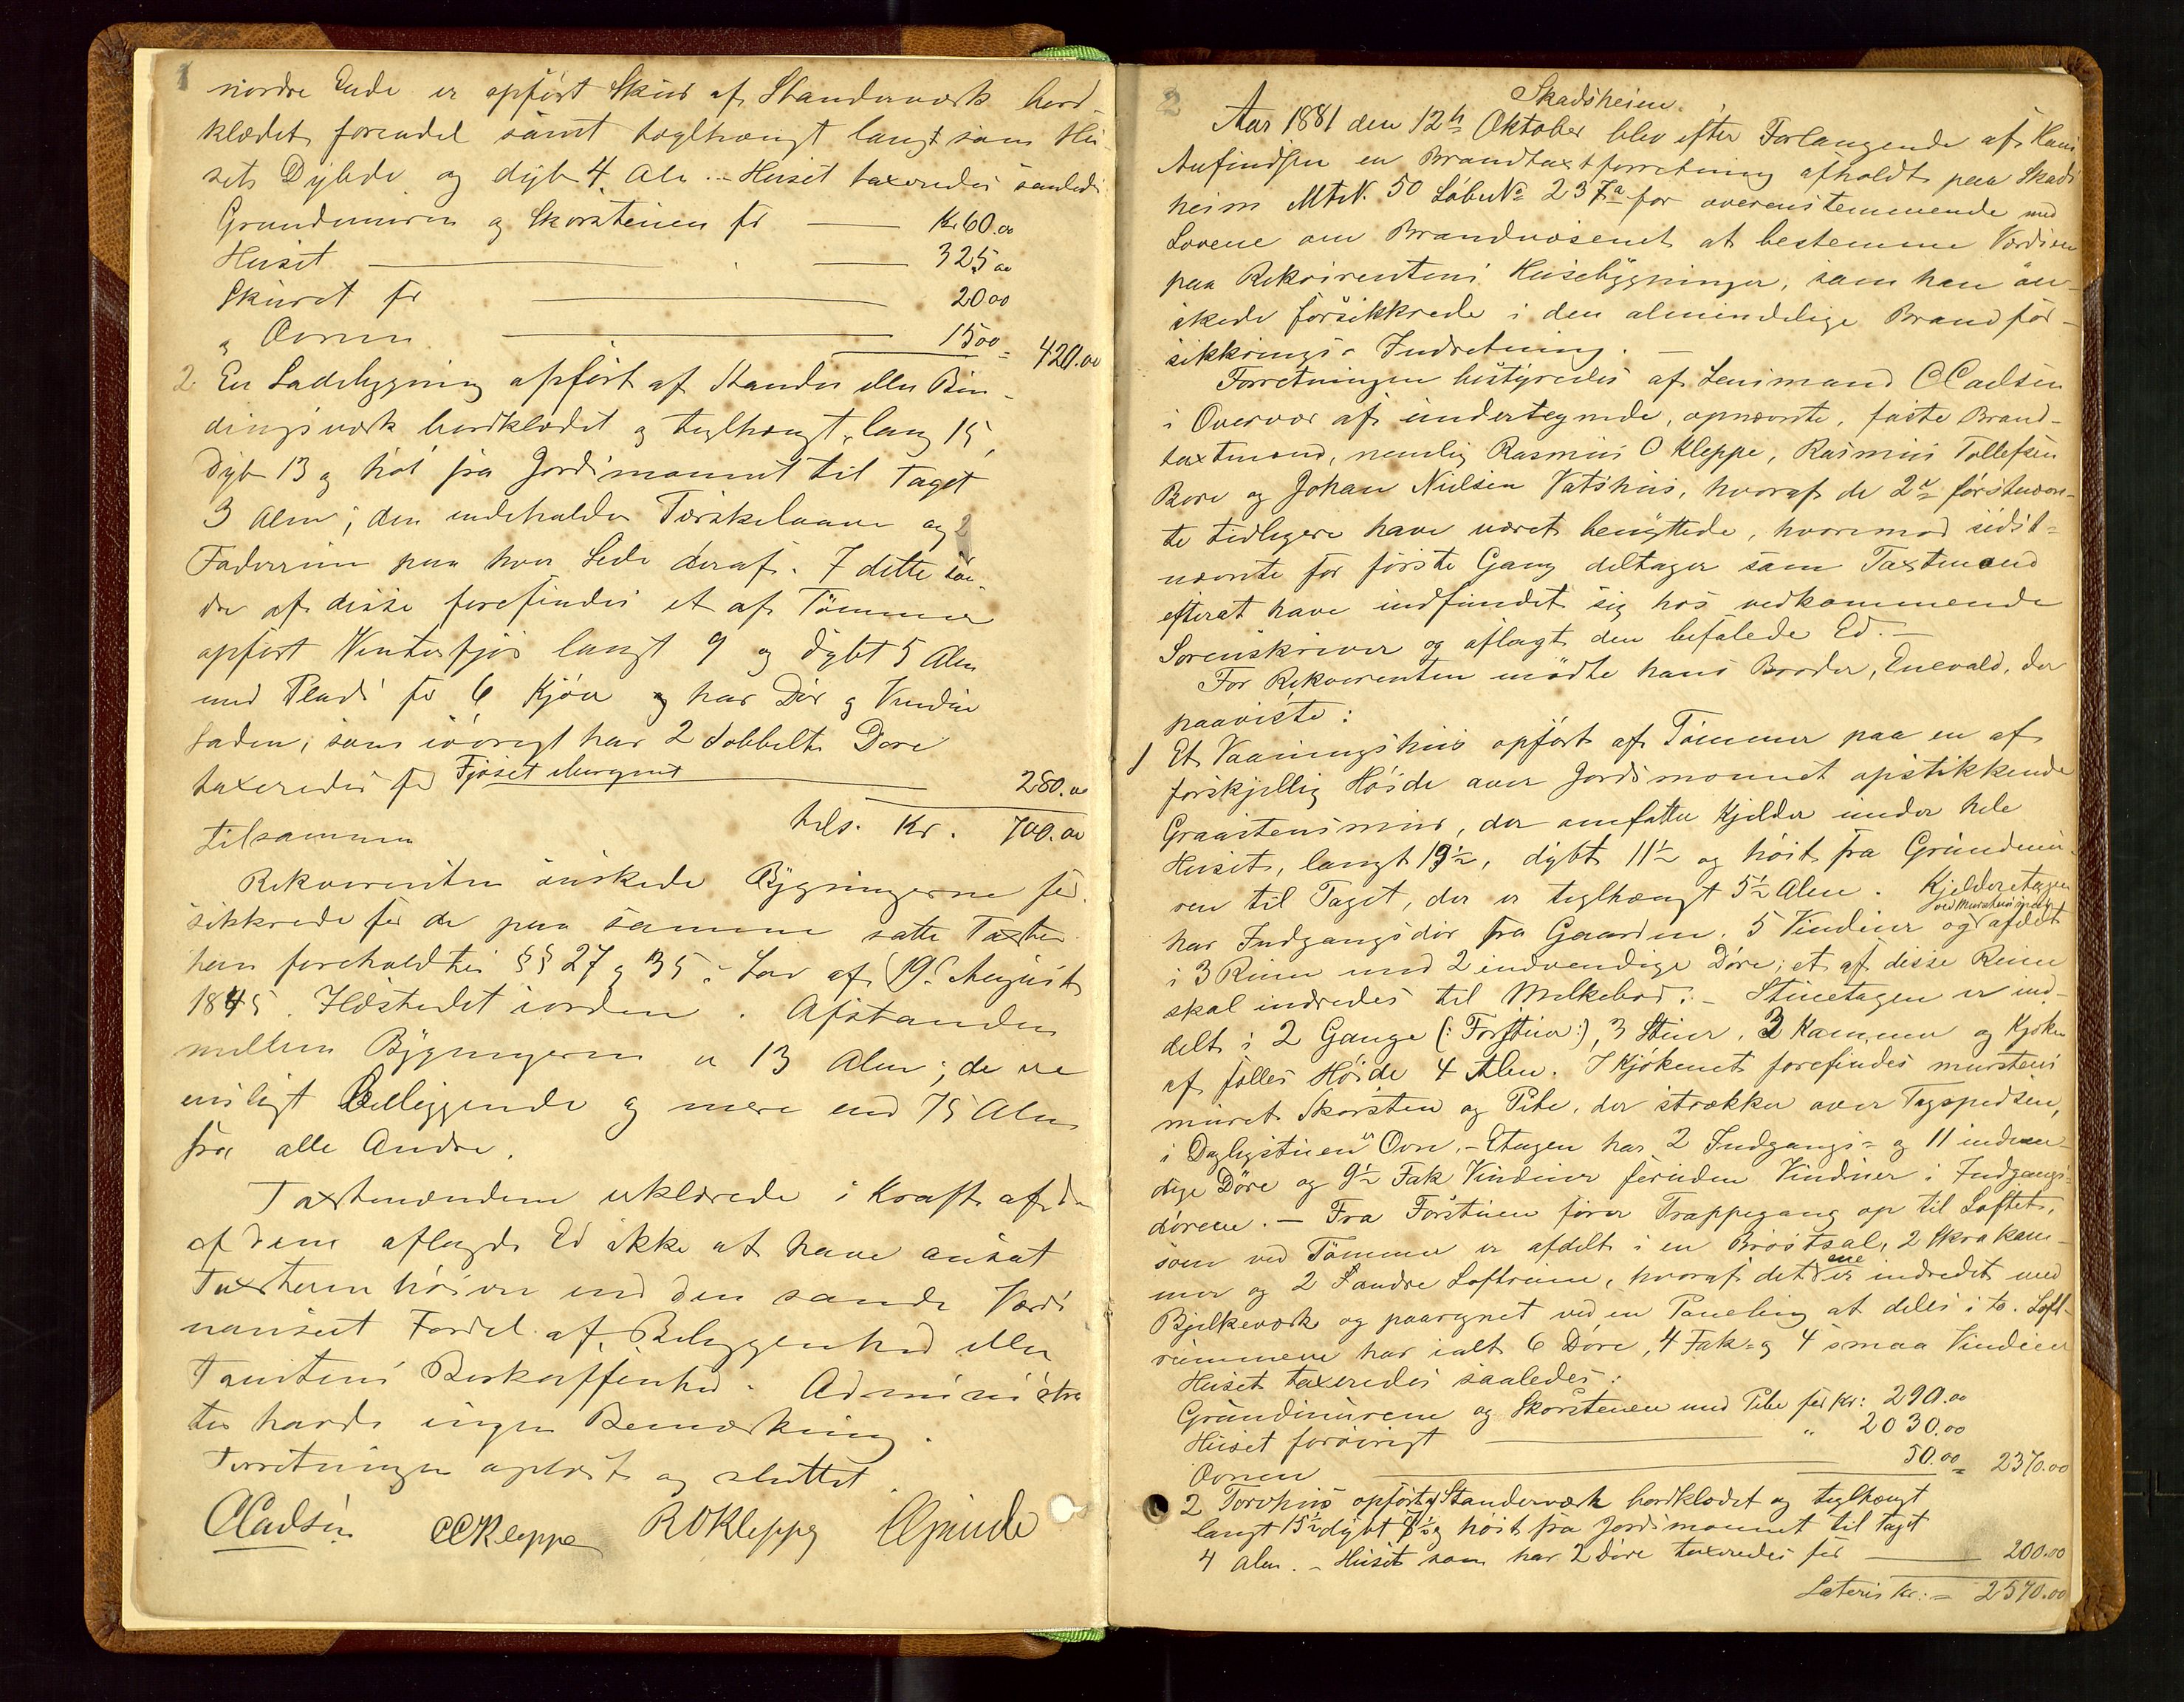 1
nordre Ende er opført Skur af Standerværk bord-
klædet forendel samt teglhængt langt som Hu-
sets Dybde og dybt 4 Aln. - Huset taxeredes saaledes
Grundmuren og Skorstenen for Kr 60.00
Huset 325.00
Skuret for 20.00
og Ovnen 15.00 = 420.00
2. En Ladebygning opført af Stander eller Bin-
dingsværk bordklædet og teglhængt, lang 15,
dyb 13 og høi fra Jordsmonnet til Taget
3 Alen; den indeholder Tærskelaave og 2
Foderrum paa hver Side deraf. I dette
af disse forefindes et af Tømmer
opført Vinterfjøs langt 9 og dybt 5 Alen
med Plads for 6 Kjør og har Dør og Vindue
Laden, som iøvrigt har 2 dobbelte Døre
taxeredes for Fjøset iberegnet 280.00
tilsammen tils. Kr. 700.00
Rekvirenten ønskede Bygningerne for-
sikkrede for de paa samme satte Taxter
hen foreholdtes §§ 27 og 35 i Lov af 19. August
1845. Ildstedet iorden. Afstanden
mellem Bygningerne er 13 Alen; de ere
ensligt Beliggende og mere end 75 Alen
fra alle Andre.
Taxtmændene erklærede i Kraft af den
af dem aflagde Ed ikke at have ansat
Taxterne høiere end den sande Værdi
uanseet Fordel af Beliggenhed eller
Tomtens Beskaffenhed. Administra
tor havde ingen Bemærkning.
Forretningen oplæst og sluttet.
CCadsen OCKleppe ROKleppe
2
Skadsheim.
Aar 1881 den 12te Oktober blev efter Forlangende af Hans
Aufindsen en Brandtaxtforretning afholdt paa Skads
heim Mt.N. 50 Løbe No 237a for overenstemmende med
Lovene om Brandvæsenet at bestemme Værdien
paa Rekvirentens Husebygninger, som han øn-
skede forsikkrede i den almindelige Brandfor-
sikkrings-Indretning. -
Forretningen bestyredes af Lensmand CCadsen
i Overvær af undertegnede, opnævnte, faste Brand-
taxtmænd, nemlig Rasmus O Kleppe, Rasmus Tollefsen
Bore og Johan Nielsen Vatshus, hvoraf de 2de førstnævn-
te tidligere have været benyttede, hvoremod sidst-
nævnte for første Gang deltager som Taxtmand
efterat have indfundet sig hos vedkommende
Sorenskriver og aflagt den befalede Ed. -
For Rekvirenten mødte hans Broder, Enevald, der
paaviste:
1 Et Vaaningshus opført af Tømmer paa en af
forskjellig Høide over Jordsmonnet opstikkende
Graastensmur, der omfatter Kjelder under hele
Huset, langt 19½, dybt 11½ og høit fra Grundmu-
ren til Taget, der er teglhængt 5½ Alen. Kjelderetagen
har Indgangsdør fra Gaarden, 5 Vinduer og ved Murstensmur afdelt
i 3 Rum med 2 indvendige Døre; et af disse Rum
skal indredes til Melkebod. - Stuetagen er ind-
delt i 2 Gange (: Forstuer :), 3 Stuer, 3 Kammer og Kjøken
af fælles Høide 4 Alen. I Kjøkenet forefindes murstens
muret Skorsten og Pibe, der strækker over Tagspidsen,
i Dagligstuen Ovn. - Etagen har 2 Indgangs- og 11 indven-
dige Døre og 9½ Fak Vinduer foruden Vinduer i Indgangs-
dørene. - Fra Forstuen fører Trappegang op til Loftet,
som ved Tømmer er afdelt i en Brøstsal, 2 Skrakam-
mer og 2 andre Loftrum, hvoraf det ene er indredet med
Bjelkeværk og paaregnet ved en Paneling at deles i to. Loft-
rummene har ialt 6 Døre, 4 Fak- og 4 smaa Vinduer
Huset taxeredes saaledes:
Grundmurene og Skorstenen med Pibe for Kr: 290.00
Huset forøvrigt " 2030.00
Ovnen 50.00 = 2370.00
2 Torvhus opført af Standerværk bordklædet og teglhængt
langt 15½ dybt 8½ og høit fra Jordsmonnet til Taget
4 Alen. - Huset som har 2 Døre taxeredes for 200.00
Lateris Kr: = 2570.00